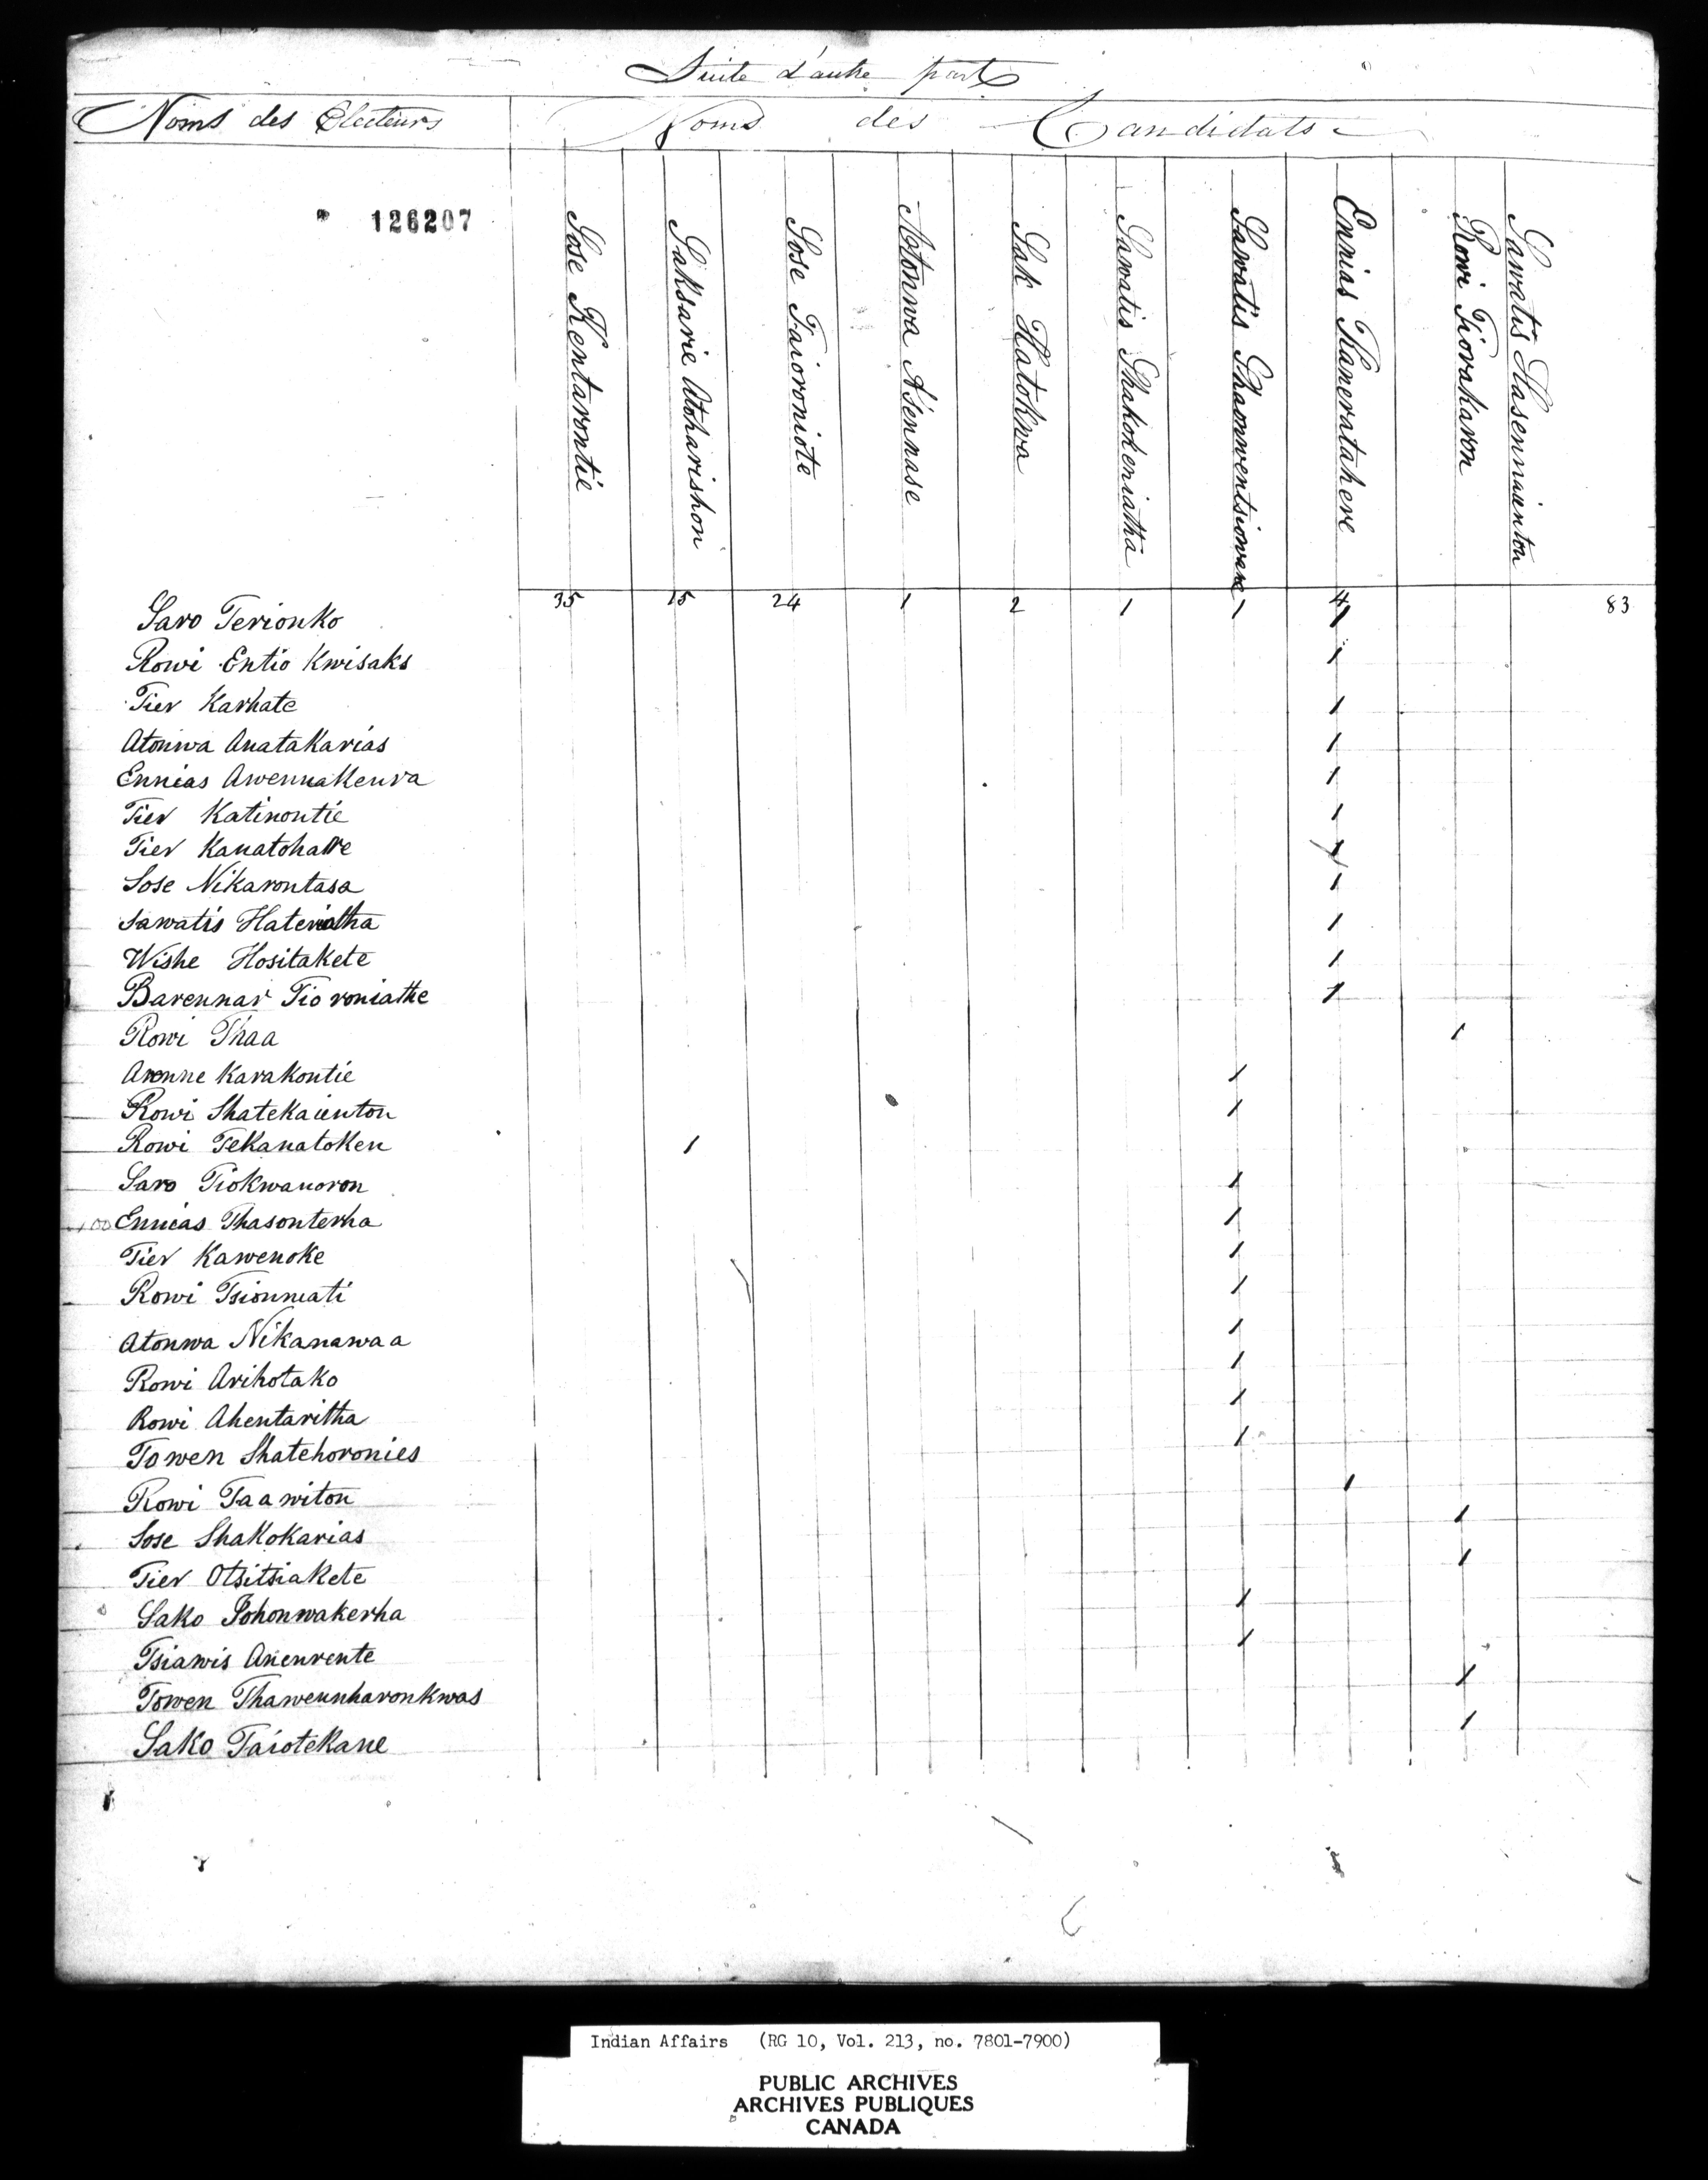 Suite d'autre part
Noms des Electeurs Noms des Candidats
126207
Sose Kentarontie
Saksarie Atoharishon
Sose Taioroniote
Atonwa Asennase
Sak Katokwa
Sawatis Shakokeniatha
Sawatis Thaonwentsioware
Ennias Kaneratahere
Rowi Tiorakaron
Sawatis Hasennaienton
35 15 24 1 2 1 1 4 83
Saro Terionko 1
Rowi Entio Kwisaks 1
Tier Karhate 1
Atonwa Anatakarias 1
Ennias Awennakenra 1
Tier Katinontie 1
Tier Kanatohare 1
Sose Nikarontasa 1
Sawatis Hateriatha 1
Wishe Hositakete 1
Barennar Tioroniathe 1
Rowi Thaa 1
Arenne Karakontie 1
Rowi Shatekaienton 1
Rowi Tekanatoken 1
Saro Tiokwanoron 1
100 Ennias Thasonterha 1
Tier Kawenoke 1
Rowi Tsionniati 1
Atonwa Nikanawaa 1
Rowi Arihotako 1
Rowi Ahentaritha 1
Towen Shatehoronies 1
Rowi Taawiton 1
Sose Shakokarias 1
Tier Otsitsiakete 1
Sako Sohonwakerha 1
Tsiawis Anenrente 1
Towen Thawennharonkwas 1
Sako Taiotekane 1
Indian Affairs (RG 10, Vol. 213, no. 7801-7900)
PUBLIC ARCHIVES
ARCHIVES PUBLIQUES
CANADA